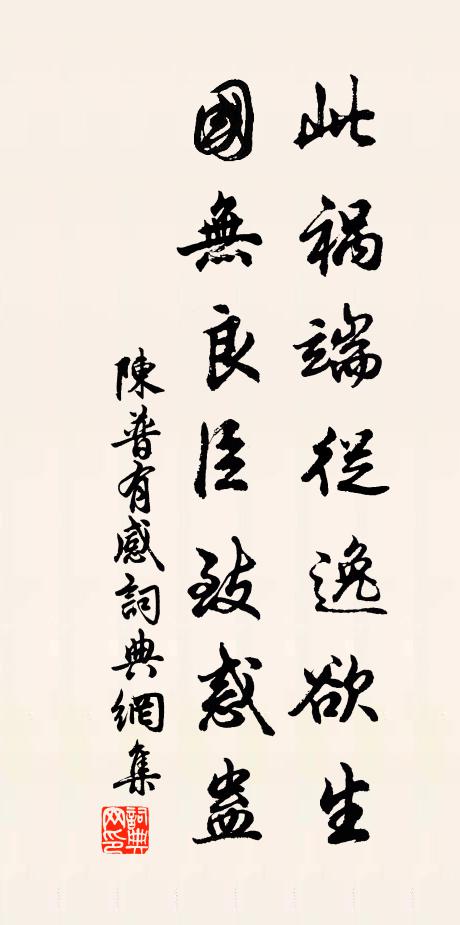 此禍端從逸欲生
國無良臣致惑蠱
陳普有感詞典網集
詞典網印